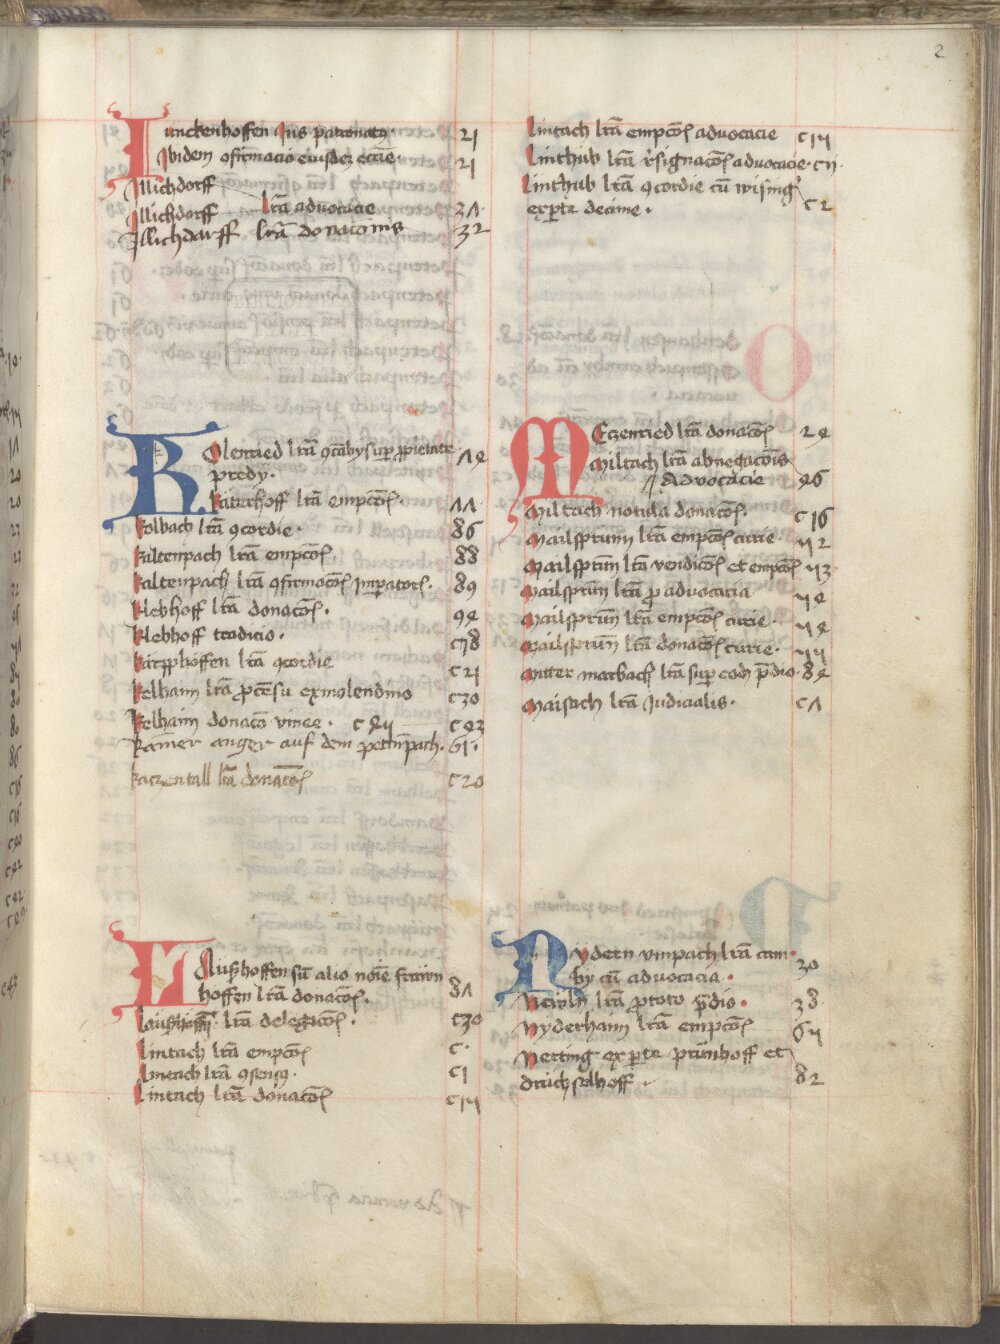 2
Iunckenhoffen Jus patronatꝰ 21
Ibidem ꝯfirmacio eiusdeꝫ ecclie 21
Illichdorff
Illichdorff lr̄a advocacie 31
Illichdarff lr̄a donacionis 32
Kolenried lr̄a ꝯcābij suꝑ ꝓpietate 14
predij.
Katerhoff lr̄a empcōis. 11
Kolbach lr̄a ꝯcordie. 86
Kaltenpach lr̄a empcōis. 88
Kaltenpach lr̄a ꝯfirmacōis Impatorꝭ. 89
Klebhoff lr̄a donacōis. 94
Klebhoff tradicio. c78
Kärpphoffen lr̄a ꝯcordie c21
Kelhaim lr̄a ꝓcēsu ex molendino c30
Kelhaim donacō vinee. c4ij c43
Kamer anger auf dem petnpach. 61.
Kaczentall lr̄a donacōis c20
Laushoffen sū alio noīe
hoffen lr̄a donacōis. 81
lr̄a delegacōis. c30
Lintach lr̄a empcōis c.
Lintach lr̄a ꝯsensꝰ. c1
Lintach lr̄a donacōis c14
Lintach lr̄a empcōis advocacie c14
Linthub lr̄a resignacōis advocacie. c11.
Linthub lr̄a ꝯcordie cū
ex ꝑte decime. c2
Meczenried lr̄a donacōis 24
Miltach lr̄a abnegacōis
advocacie 46
Miltach notula donacōis. c16
Mailsprunn lr̄a empcōis curie. 42
Mailsprūn lr̄a vendicōis et empcōis 43
Mailsprūn lr̄a ꝓ advocacia. 44
Mailsprūn lr̄a empcōis curie. 44
Mailsprūn lr̄a donacōis curie. 44
Mitter marbach lr̄a suꝑ eodē p̄dio. 84
Maisach lr̄a Judicialis. c1
Nydern vmpach lr̄a cam
by cū advocacia. 30
lr̄a ꝓ toto p̄dio. 38
Nyderhaim lr̄a empcōis 64
Nerting ex ꝑte prünhoff et
drüchselhoff 82